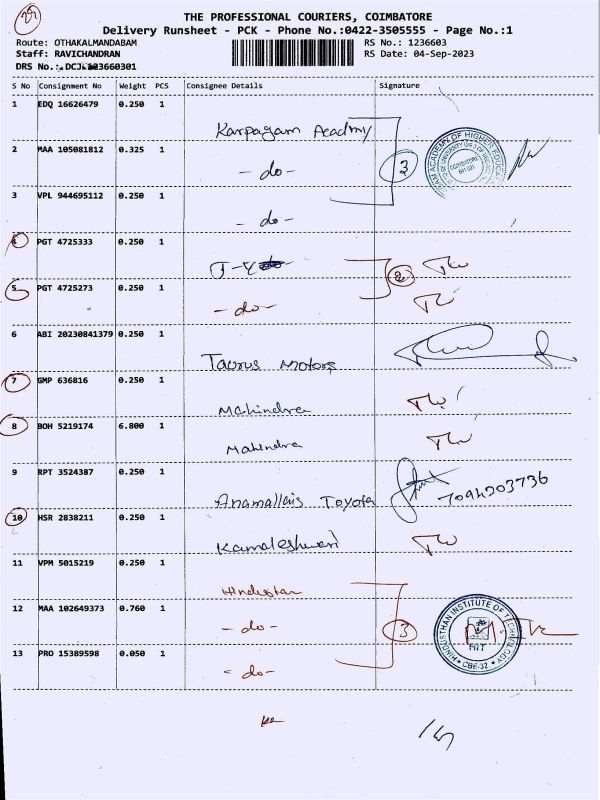 29
THE PROFESSIONAL COURIERS, COIMBATORE
Delivery Runsheet - PCK - Phone No.:0422-3505555 - Page No.:1
Route: OTHAKALMANDABAM RS No.: 1236603
Staff: RAVICHANDRAN RS Date: 04-Sep-2023
DRS No.:
S No Consignment No Weight PCS Consignee Details Signature
1 EDQ 16626479 0.250 1
Karpagam Acadmy
2 MAA 105081812 0.325 1
- do - 3
3 VPL 944695112 0.250 1
- do -
4 PGT 4725333 0.250 1
2
5 PGT 4725273 0.250 1
- do -
6 ABI 20230841379 0.250 1
Taurus Motors
7 GMP 636816 0.250 1
Mahindra
8 BOH 5219174 6.800 1
Mahindra
9 RPT 3524387 0.250 1
Anamallais Toyota 7094203736
10 HSR 2838211 0.250 1
Kamaleshwari
11 VPM 5015219 0.250 1
Hindustan
12 MAA 102649373 0.760 1
- do - 3
HINDUSTHAN INSTITUTE OF TECHNOLOGY
HIT
CBE-32
13 PRO 15389598 0.050 1
- do -